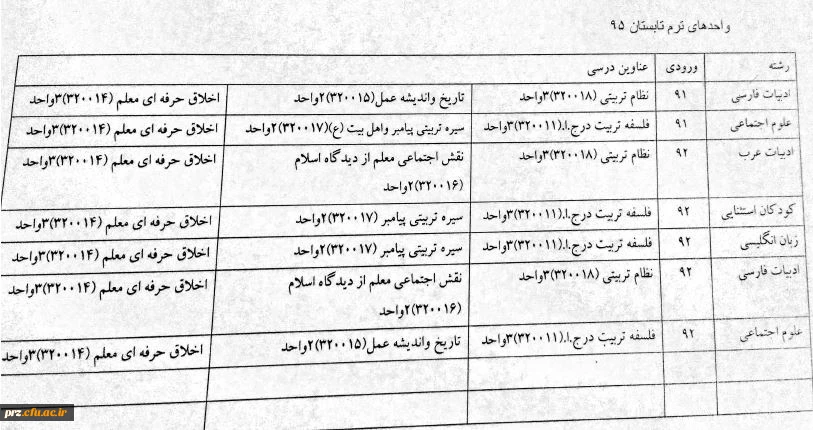 واحدهای ترم تابستان ۹۵
رشته ورودی عناوین درسی
ادبیات فارسی ۹۱ نظام تربیتی (۳۲۰۰۱۸)۳واحد تاریخ واندیشه عمل(۳۲۰۰۱۵)۲واحد اخلاق حرفه ای معلم (۳۲۰۰۱۴)۳واحد
علوم اجتماعی ۹۱ فلسفه تربیت درج.ا.(۳۲۰۰۱۱)۳واحد سیره تربیتی پیامبر واهل بیت (ع)(۳۲۰۰۱۷)۲واحد اخلاق حرفه ای معلم (۳۲۰۰۱۴)۳واحد
ادبیات عرب ۹۲ نظام تربیتی (۳۲۰۰۱۸)۳واحد نقش اجتماعی معلم از دیدگاه اسلام اخلاق حرفه ای معلم (۳۲۰۰۱۴)۳واحد
(۳۲۰۰۱۶)۲واحد
کودکان استثنایی ۹۲ فلسفه تربیت درج.ا.(۳۲۰۰۱۱)۳واحد سیره تربیتی پیامبر (۳۲۰۰۱۷)۲واحد اخلاق حرفه ای معلم (۳۲۰۰۱۴)۳واحد
زبان انگلیسی ۹۲ فلسفه تربیت درج.ا.(۳۲۰۰۱۱)۳واحد سیره تربیتی پیامبر (۳۲۰۰۱۷)۲واحد اخلاق حرفه ای معلم (۳۲۰۰۱۴)۳واحد
ادبیات فارسی ۹۲ نظام تربیتی (۳۲۰۰۱۸)۳واحد نقش اجتماعی معلم از دیدگاه اسلام اخلاق حرفه ای معلم (۳۲۰۰۱۴)۳واحد
(۳۲۰۰۱۶)۲واحد
علوم اجتماعی ۹۲ فلسفه تربیت درج.ا.(۳۲۰۰۱۱)۳واحد تاریخ واندیشه عمل(۳۲۰۰۱۵)۲واحد اخلاق حرفه ای معلم (۳۲۰۰۱۴)۳واحد
prz.cfu.ac.ir